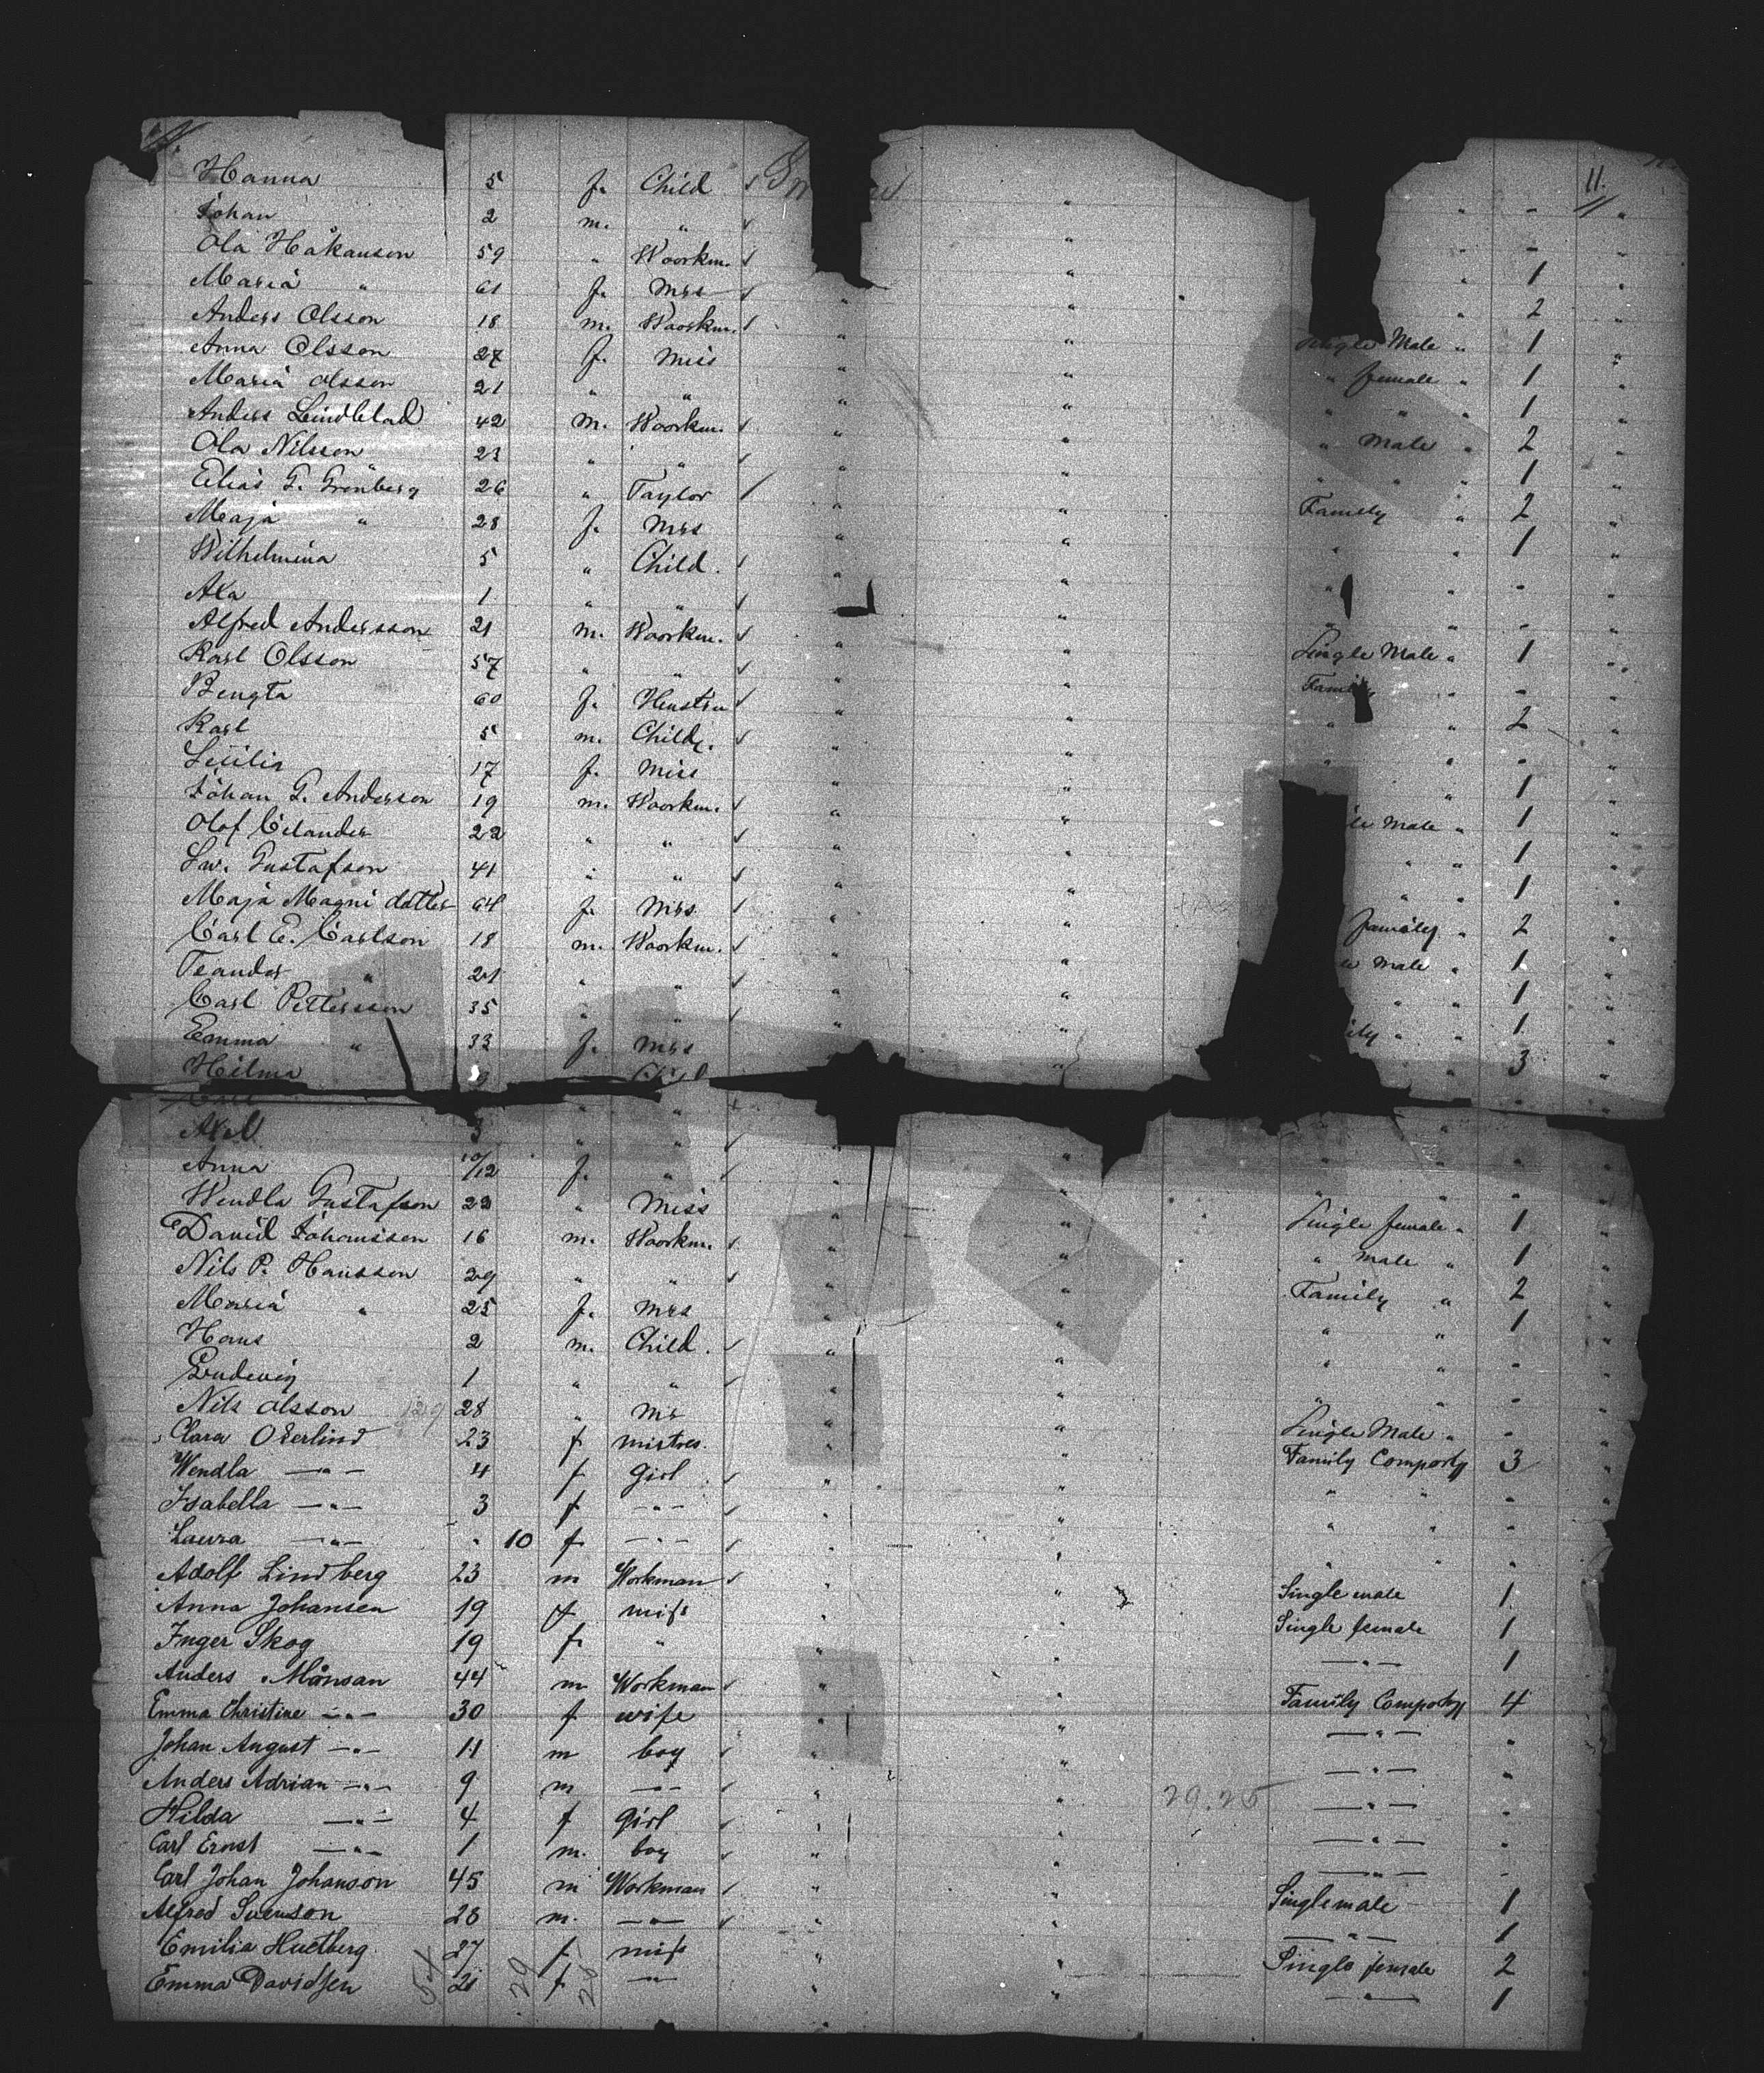 11.
Hanna 5 f. Child
Johan 2 m. "
Ola Håkanson 59 " Woorkm. " 1 "
Maria " 61 f. Mrs " " " 2 "
Anders Olsson 18 m. Woorkm. " " Single Male " 1 "
Anna Olsson 27 f. Miss " " " female " 1 "
Maria Olsson 21 " " " " " " " 1 "
Anders Lindblad 42 m. Woorkm. " " " Male " 2 "
Ola Nilsson 23 " " " " " " " 1 "
Elias G. Grönberg 26 " Taylor " " Family " 2 "
Maja " 28 f. Mrs " " " " 1 "
Wilhelmina 5 " Child. " " " " - "
Axa 1 " " " " " " - "
Alfred Andersson 21 m. Woorkm. " " Single Male " 1 "
Karl Olsson 57 " " " " Family - "
Bengta 60 f. " " " " 2 "
Karl 5 m. Child. " " " " - "
17 f. Miss " " " 1 "
Johan G. Anderson 19 m. Woorkm. " " Male " 1 "
Olof 22 " " " " " " 1 "
Sw. Gustafson 41 " " " " " 1 "
Maja Magni dotter 64 f. Mrs " " family " 2 "
Carl E. Carlson 18 m. Woorkm. " " Male " 1 "
Teander " 21 " " " " " " 1 "
Carl Pettersson 35 " " " " " " 1 "
Emma " 33 f. Mrs " " 3 "
Hilma 9 Child
" "
Axel 3 " " " " "
Anna 10/12 f. " " " " - "
Wendla Gustafson 23 " Miss " " Single female " 1 "
David Johansson 16 m. Woorkm. " " " male " 1 "
Nils P. Hansson 29 " " " " Family " 2 "
Maria " 25 f. Mrs " " " " 1 "
Hans 2 m. Child. " " " " - "
Ludevig 1 " " " " " " - "
Nils Olsson 28 " Mr " " Single Male " - "
Clara Okerlind 23 f mistres. " " Family Comporty 3 "
Wendla —"— 4 f girl " " " " "
Isabella —"— 3 f —"— " " " " "
Laura —"— " 10 f —"— " " " "
Adolf Lindberg 23 m Workman " " Single male 1
Anna Johansen 19 f miss " " Single female 1
Inger Skog 19 f " " " —"— 1
Anders Månsan 44 m Workman " " Family Comporty 4
Emma Christine —"— 30 f wife " " —"— "
Johan August —"— 11 m boy " " —"— "
Anders Adrian —"— 9 m —"— " " 29.25 —"— "
Hilda —"— 4 f girl " " —"— "
Carl Ernst —"— 1 m. boy " " —"— -
Carl Johan Johanson 45 m Workman " " Single male 1
Alfred Svenson 28 m. —"— " " —"— 1
Emilia Hultberg 27 f miss " " Single female 2
Emma Davidsen 21 f —"— " " —"— 1
54 29 25